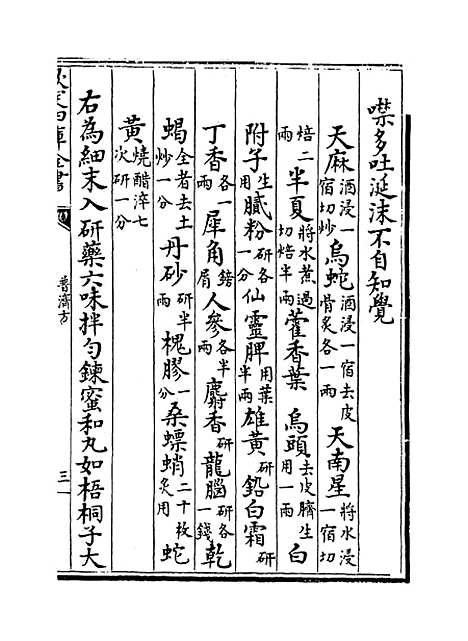 噤多吐涎沫不自知覺
天麻酒浸一宿切炒烏蛇酒浸一宿去皮骨炙各一兩天南星將水浸一宿切
焙二兩半夏將水煮過切焙半兩藿香葉 烏頭去皮臍生用一兩白
附子生用膩粉研各一分仙靈脾用葉半兩雄黄研鉛白霜研
丁香各一兩犀角鎊屑人參各半兩麝香研龍腦研各一錢乾
蝎全者去土炒一分丹砂研半兩槐膠一分桑螵蛸二十枚炙用蛇
黄燒醋淬七次研一分
右為細末入研藥六味拌勻鍊蜜和丸如梧桐子大
欽定四庫全書
普濟方
三一